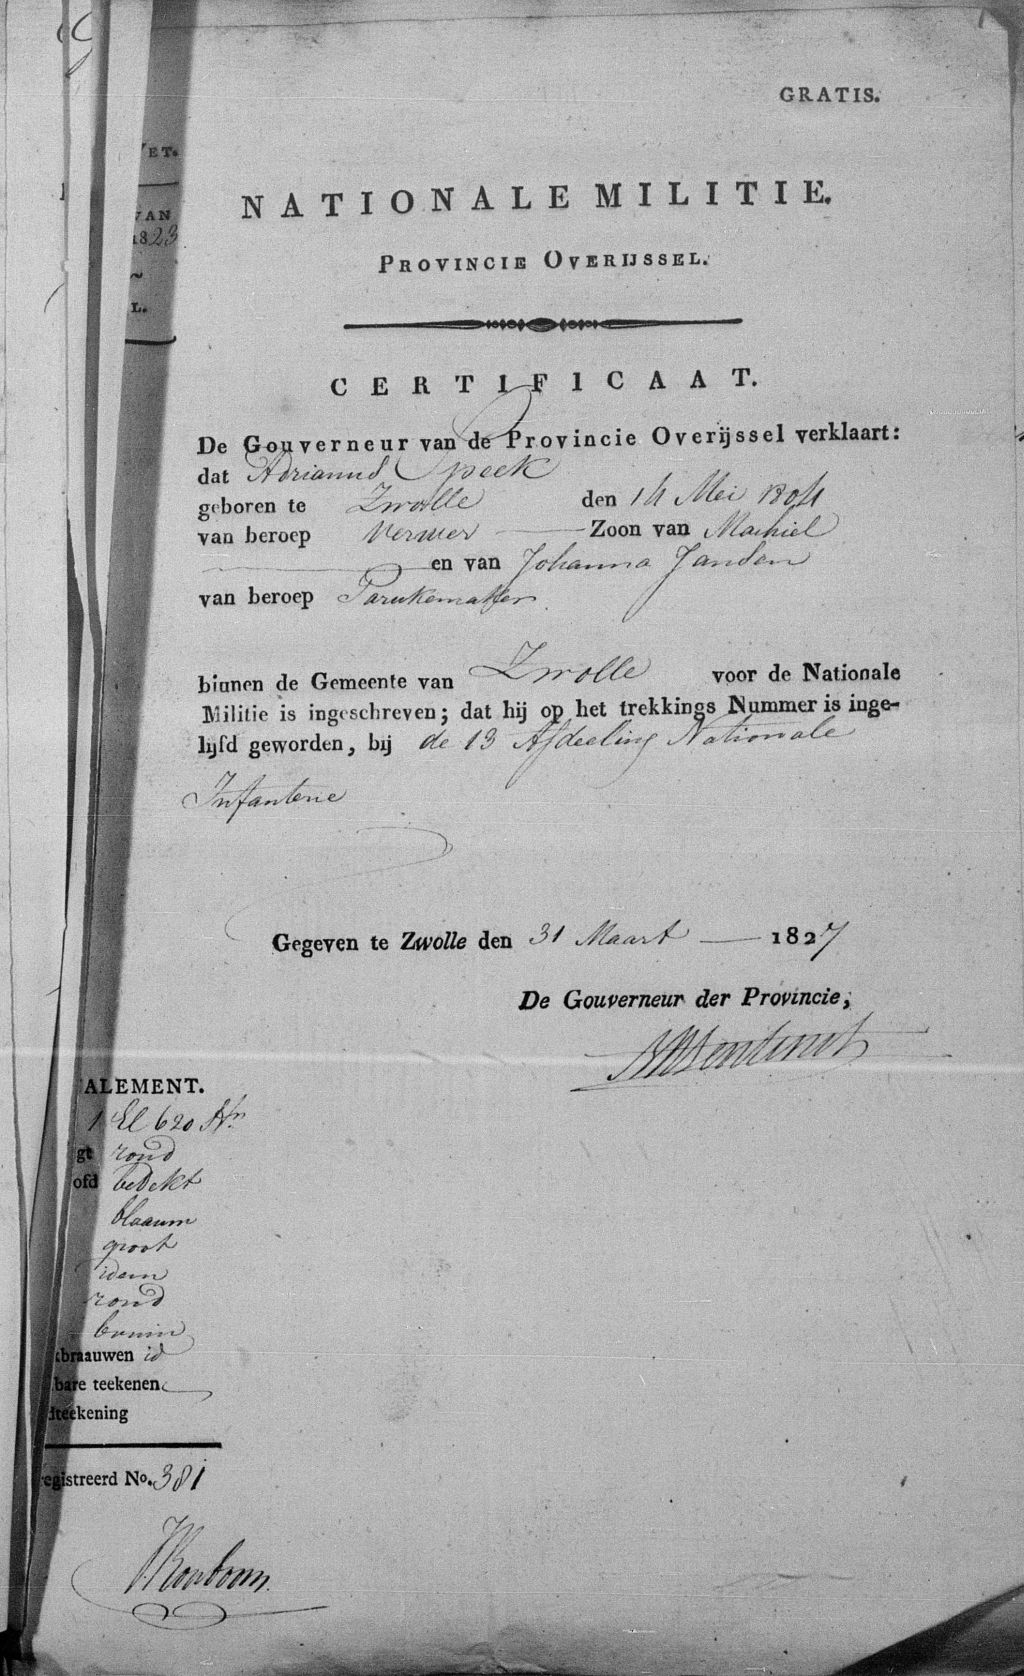 GRATIS.
NATIONALE MILITIE.
PROVINCIE OVERIJSSEL.
CERTIFICAAT.
De Gouverneur van de Provincie Overijssel verklaart:
dat Adrianus Speek
geboren te Zwolle den 14 Mei 1804
van beroep Verwer Zoon van Machiel
en van Johanna Jansen
van beroep Parukemaker
binnen de Gemeente van Zwolle voor de Nationale
Militie is ingeschreven; dat hij op het trekkings Nummer is inge-
lijfd geworden, bij de 13 Afdeeling Nationale
Infanterie
Gegeven te Zwolle den 31 Maart 1827
De Gouverneur der Provincie,
ET.
VAN
1823
L.
ALEMENT.
1 El 620 Str
gt rond
ofd bedekt
blaauw
groot
idem
rond
bruin
kbraauwen id
bare teekenen
dteekening
egistreerd No. 381